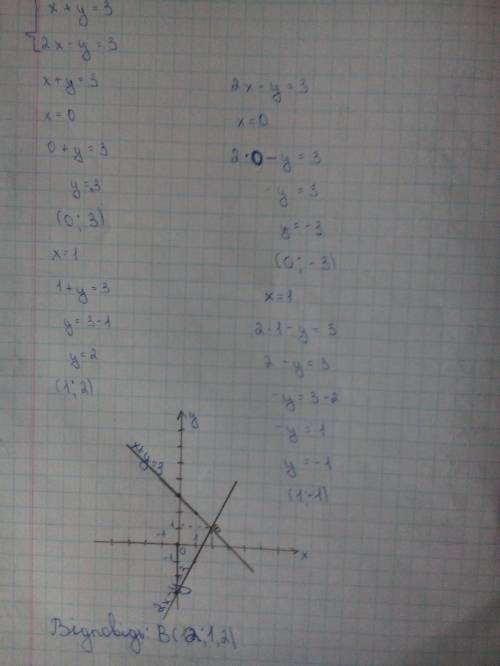 x + y = 3
2x - y = 3
x + y = 3
x = 0
0 + y = 3
y = 3
(0; 3)
x = 1
1 + y = 3
y = 3 - 1
y = 2
(1; 2)
2x - y = 3
x = 0
2·0 - y = 3
-y = 3
y = -3
(0; -3)
x = 1
2·1 - y = 3
2 - y = 3
-y = 3 - 2
-y = 1
y = -1
(1; -1)
y
x+y=3
1
-1
0
1
x
-1
2x-y=3
Відповідь: B(2; 1,2)